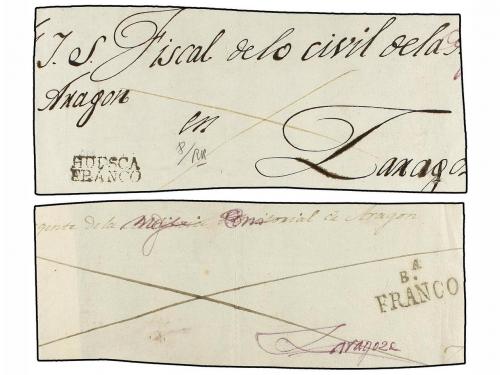 J. S. Fiscal de lo civil de la
Aragon
en
8/RR
Zarago
HUESCA
FRANCO
gente de la
torial de Aragon
B.A
FRANCO
Zaragoza